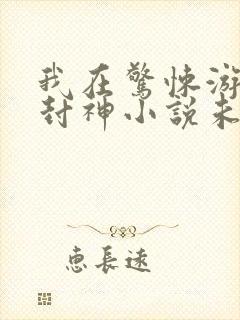 我在驚悚游
封神小說未
惠長遠